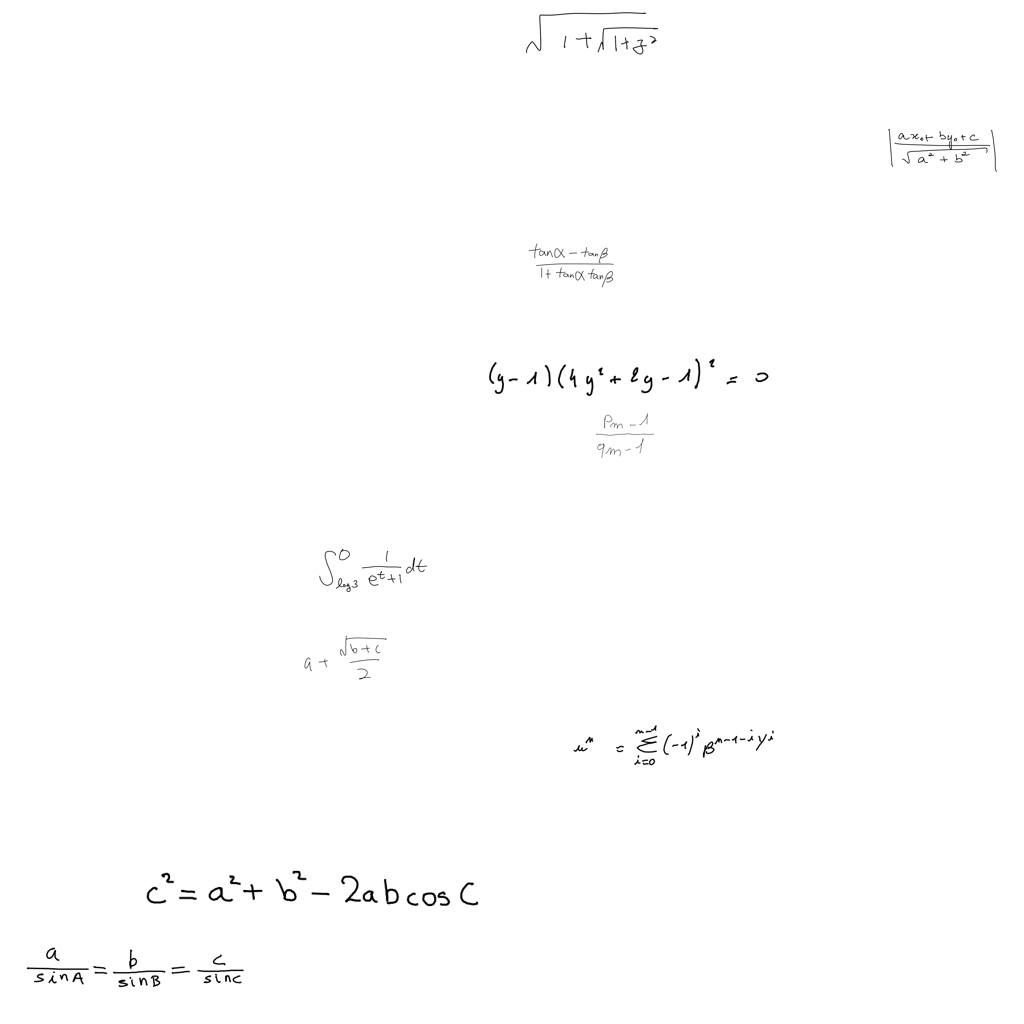 \sqrt{1+\sqrt{1+z^2}}
\left|\frac{ax_0+by_0+c}{\sqrt{a^2+b^2}}\right|
\frac{\tan\alpha-\tan\beta}{1+\tan\alpha\tan\beta}
(y-1)(4y^2+2y-1)^2=0
\frac{p_m-1}{q_m-1}
\int_{\log 3}^{0}\frac{1}{e^t+1}dt
a+\frac{\sqrt{b+c}}{2}
u^n=\sum_{i=0}^{n-1}(-1)^i\beta^{n-1-i}y^i
c^2=a^2+b^2-2ab\cos C
\frac{a}{\sin A}=\frac{b}{\sin B}=\frac{c}{\sin C}